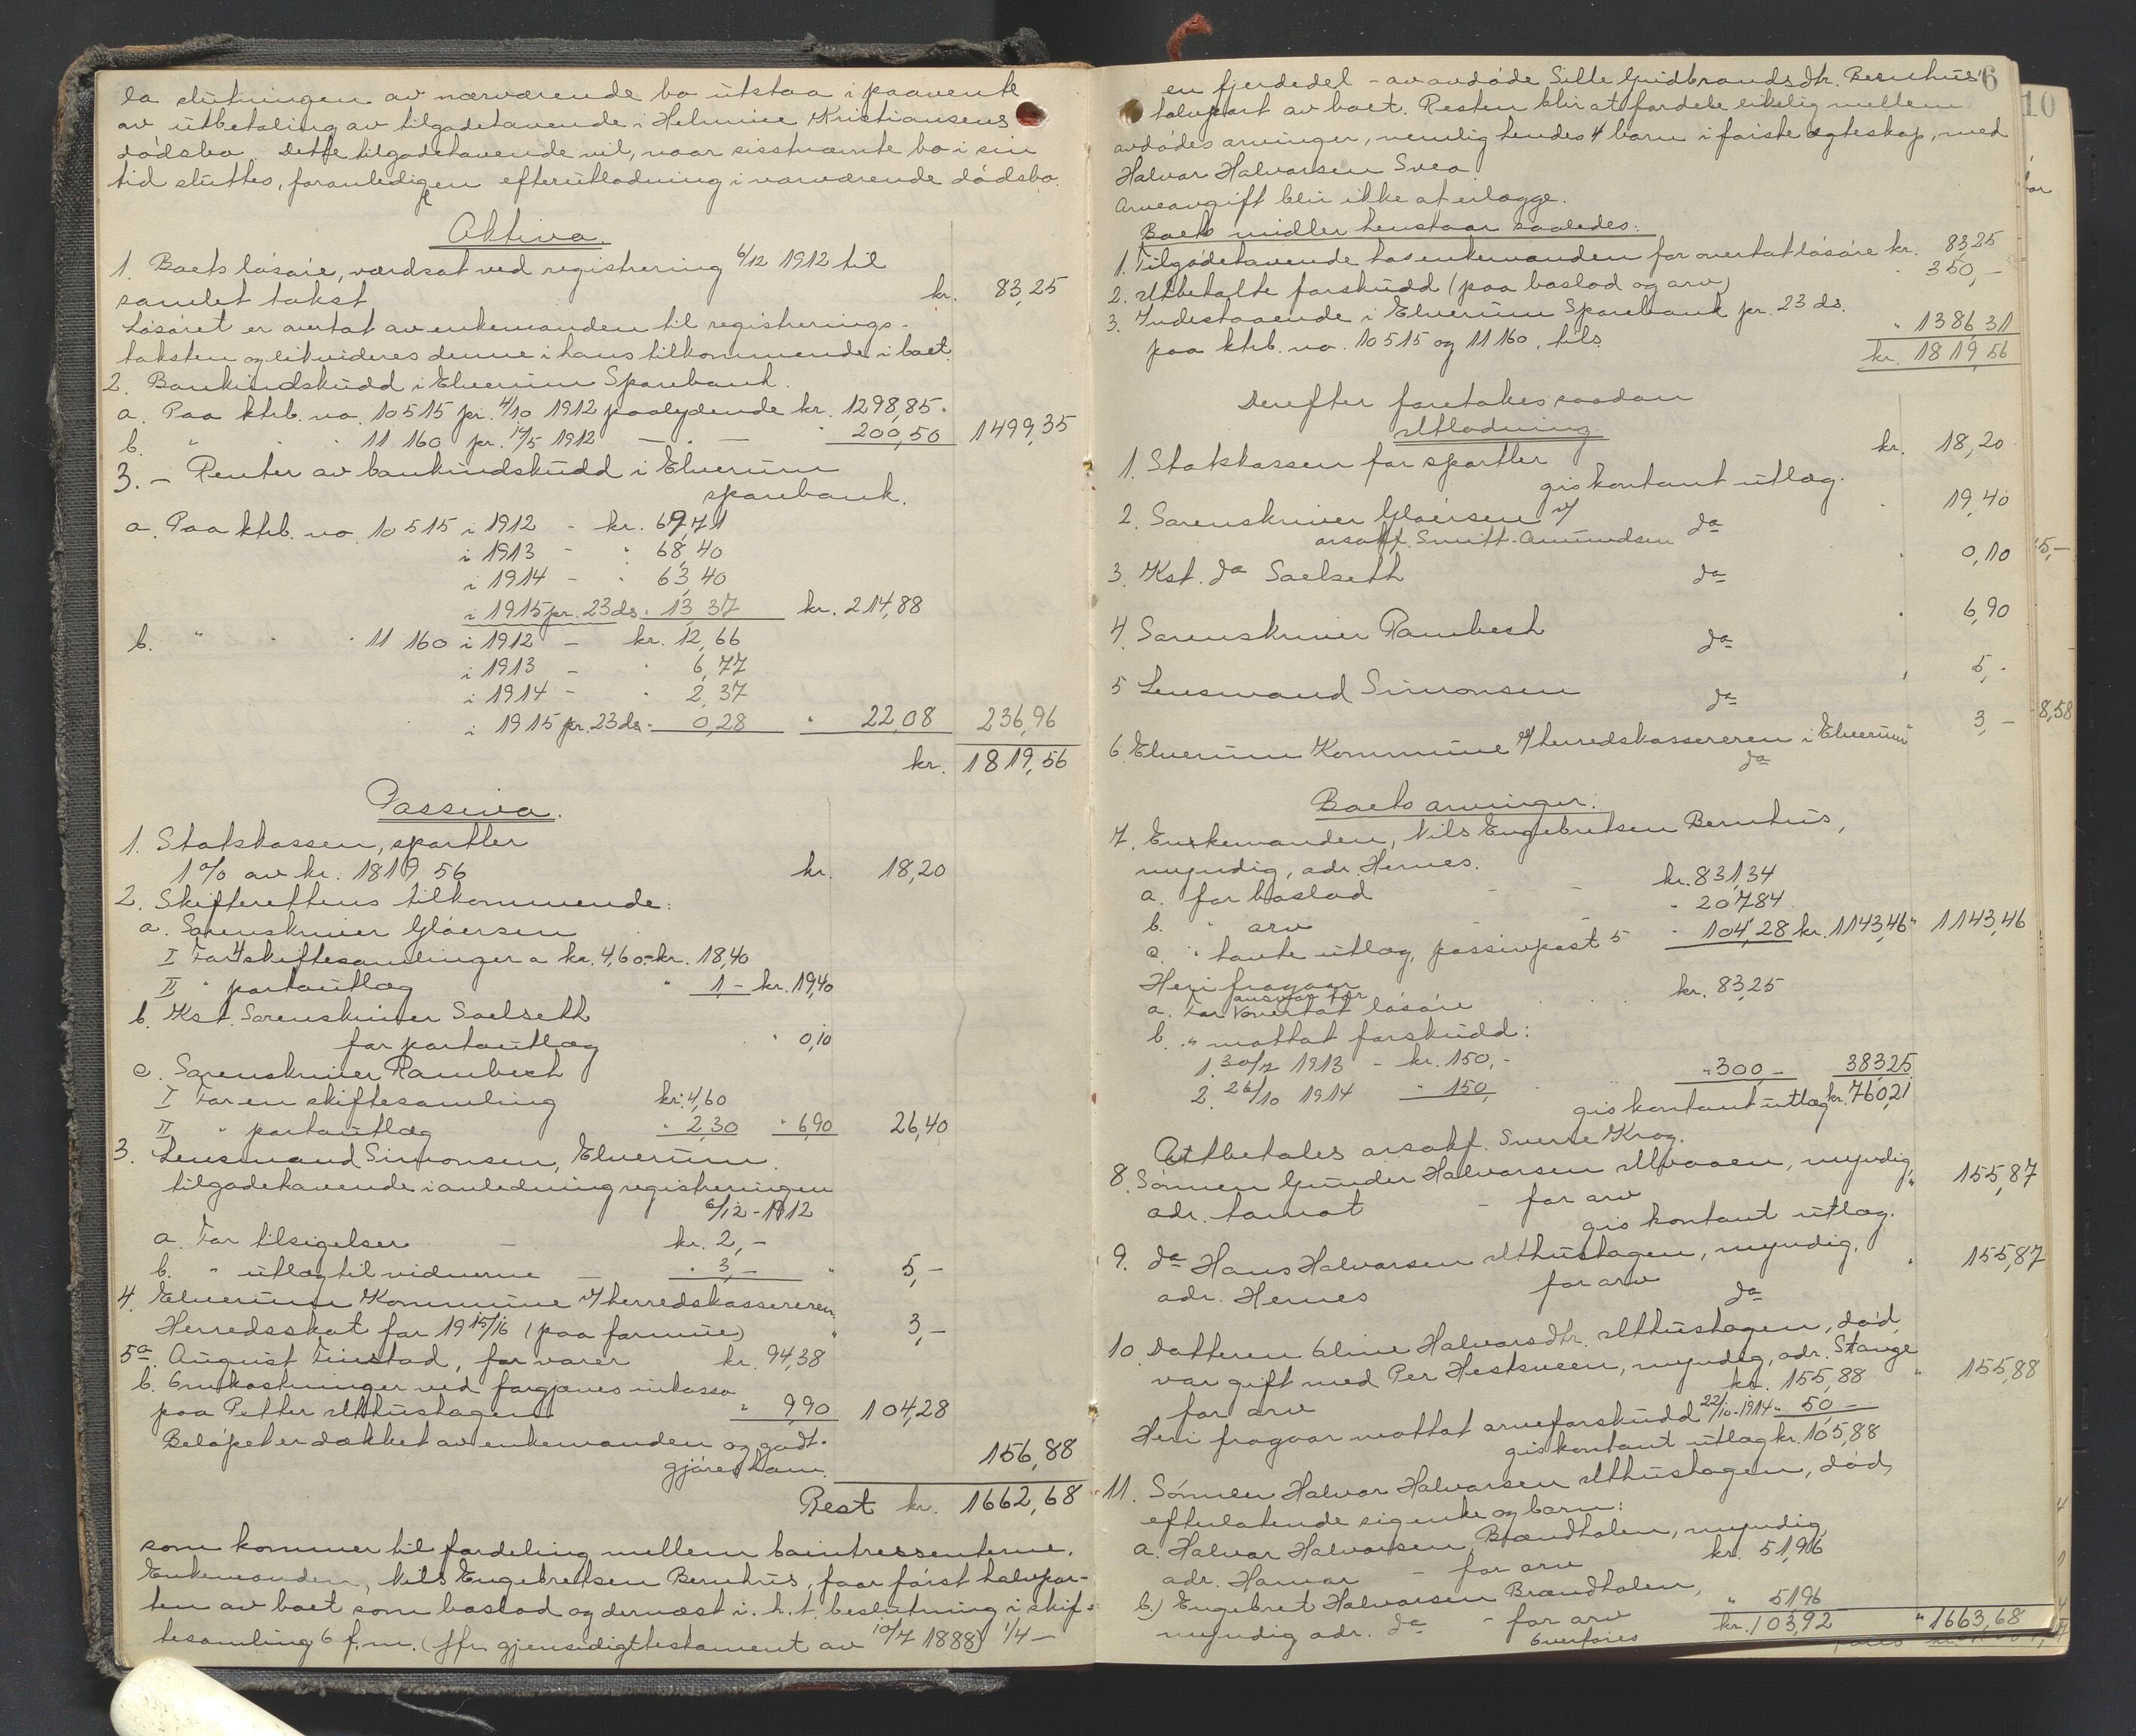 la slutningen av nærværende bo utstaa i paavente
av utbetaling av tilgodehavende i Helmine Kristiansens
dødsbo. Dette tilgodehavende vil, naar sisstnævnte bo i sin
tid sluttes, foranledigen efterutlodning i nærværende dødsbo.
Aktiva.
1. Boets løsøre, værdsat ved registrering 6/12 1912 til
samlet takst kr. 83,25
Løsøret er overtat av enkemanden til registrerings-
taksten og likvideres denne i hans tilkommende i boet.
2. Bankindskudd i Elverum Sparebank.
a. Paa ktrb. no. 10515 pr. 4/10 1912 paalydende kr. 1298,85.
b. " " " 11 160 pr. 14/5 1912 — " — " 200,50 1499,35
3. - Renter av bankindskudd i Elverum
sparebank.
a. Paa ktrb. no. 10515 i 1912 - kr. 69,71
i 1913 - " 68,40
i 1914 - " 63,40
i 1915 pr. 23 ds. " 13,37 kr. 214,88
b. " " " 11 160 i 1912 - kr. 12,66
i 1913 - " 6,77
i 1914 - " 2,37
i 1915 pr. 23 ds. - 0,28 " 22,08 236,96
kr. 1819,56
Passiva.
1. Statskassen, sportler
1 % av kr. 1819 56 kr. 18,20
2. Skifterettens tilkommende:
a. Sorenskriver Gløersen
I For 4 skiftesamlinger a kr. 4,60 - kr. 18,40
II " portoutlæg " 1,- kr. 19,40
b. Kst. Sorenskriver Saelseth
for portoutlæg " 0,10
c. Sorenskriver Rambech
I For en skiftesamling kr. 4,60
II " portoutlæg " 2,30 " 6,90 26,40
3. Lensmand Simonsen, Elverum.
tilgodehavende i anledning registreringen
6/12 - 1912
a. For tilsigelser - kr. 2,-
b. " utlæg til vidnerne - " 3,- " 5,-
4. Elverum Kommune v/ herredskassereren
Herredsskat for 1915/16 (paa formue) " 3,-
5a. August Finstad, for varer kr. 94,38
b. Omkostninger ved forgjæves inkasso
paa Petter Uthushagen " 9,90 104,28
Beløpet er dækket av enkemanden og godt-
gjøres ham. 156,88
Rest kr. 1662,68
som kommer til fordeling mellem bointressenterne.
Enkemanden, Nils Engebretsen Bernhus, faar først halvpar-
ten av boet som boslod og dernæst i. h. t. beslutning i skif-
tesamling 6 f. m. (jfr. gjensidigt testament av 10/7 1888) 1/4 -
6
en fjerdedel - av avdøde Sille Gudbrandsdtr. Bernhus'
halvpart av boet. Resten blir at fordele likelig mellem
avdødes arvinger, nemlig hendes 4 barn i første ægteskap, med
Halvor Halvorsen Svea.
Arveavgift blir ikke at erlægge.
Boets midler henstaar saaledes:
1. Tilgodehavende hos enkemanden for overtat løsøre kr. 83,25
2. Utbetalte forskudd (paa boslod og arv) " 350,-
3. Indestaaende i Elverum Sparebank pr. 23 ds.
paa ktrb. no. 10515 og 11160, tils. " 1386,31
kr. 1819,56
Derefter foretakes saadan
Utlodning.
1. Statskassen for sportler kr. 18,20
gis kontant utlæg.
2. Sorenskriver Gløersen v/ 19,40
o.r.sakf. Smitt-Amundsen do
3. Kst. do Saelseth do 0,10
4. Sorenskriver Rambech do 6,90
5 Lensmand Simonsen do 5,-
6. Elverum Kommune v/ herredskassereren i Elverum 3,-
do
Boets arvinger:
7. Enkemanden, Nils Engebretsen Bernhus,
myndig, adr. Hernes.
a. for boslod - - kr. 831,34
b. " arv " 207,84
c. " havte utlæg, passivpost 5 " 104,28 kr. 1143,46 " 1143,46
Heri fragaar
a. For ansvar for overtat løsøre kr. 83,25
b. " mottat forskudd:
1. 30/7 1913 - kr. 150,-
2. 26/10 1914 " 150, " 300 - 383,25
gis kontant utlæg kr. 760,21
Utbetales o.r.sakf. Sverre Krog.
8. Sønnen Gunder Halvorsen Moaaen, myndig,
adr. Hamot - for arv " 155,87
gis kontant utlæg.
9. do Hans Halvorsen Uthushagen, myndig,
adr. Hernes for arv " 155,87
do
10. Datteren Oline Halvorsdtr. Uthushagen, død,
var gift med Per Hestsveen, myndig, adr. Stange
for arv kr. 155,88 " 155,88
Heri fragaar mottat arveforskudd 22/10-1914 " 50 -
gis kontant utlæg kr. 105,88
11. Sønnen Halvor Halvorsen Uthushagen, død,
efterlatende sig enke og barn:
a. Halvor Halvorsen Brændholen, myndig,
adr. Hamar - for arv kr. 51,96
b.) Engebret Halvorsen Brændholen,
myndig adr. do - for arv " 51,96
Overføres kr. 103,92 " 1663,68
10
for
5,-
8,58